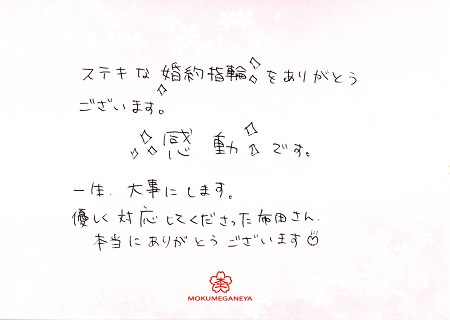 ステキな婚約指輪をありがとう
ございます。
感動です。
一生、大事にします。
優しく対応してくださった布田さん、
本当にありがとうございます
MOKUMEGANEYA